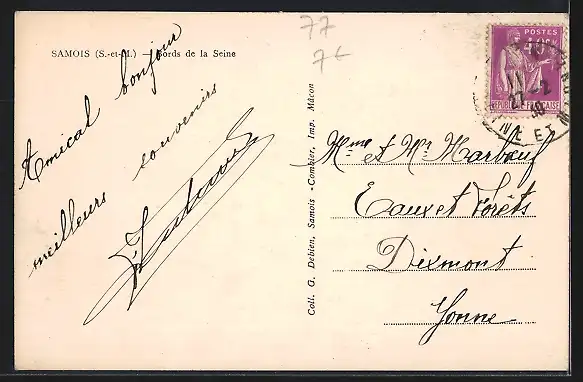 77
7
SAMOIS (S.-et-M.) — Bords de la Seine
Amical bonjour
meilleurs souvenirs
Coll. G. Debien, Samois - Combier, Imp. Mâcon
POSTES
REPUBLIQUE FRANÇAISE
27-2
38
NE ET
Mme et Mr Marbœuf
Eaux et Forêts
Dixmont
Yonne